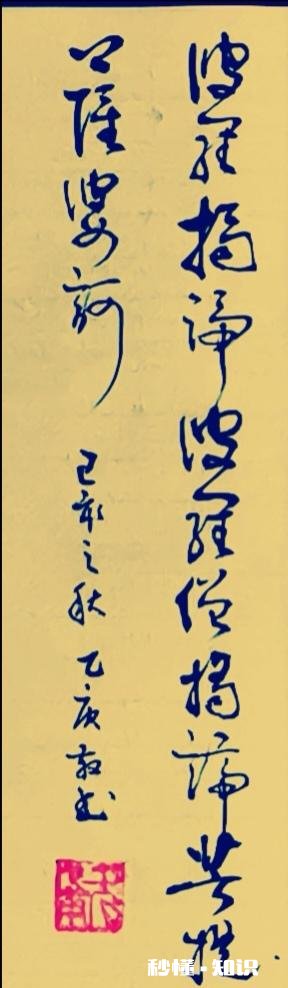 波羅揭諦波羅僧揭諦菩提
薩婆訶
己亥之秋 乙庚敬书
秒懂·知识